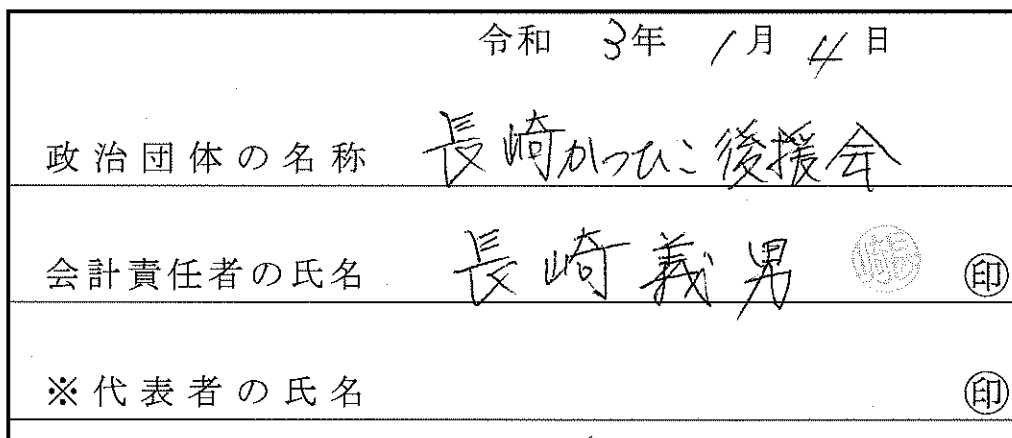 令和 3年 1月 4日
政治団体の名称 長崎かつひこ後援会
会計責任者の氏名 長崎義男 長崎 ㊞
※代表者の氏名 ㊞